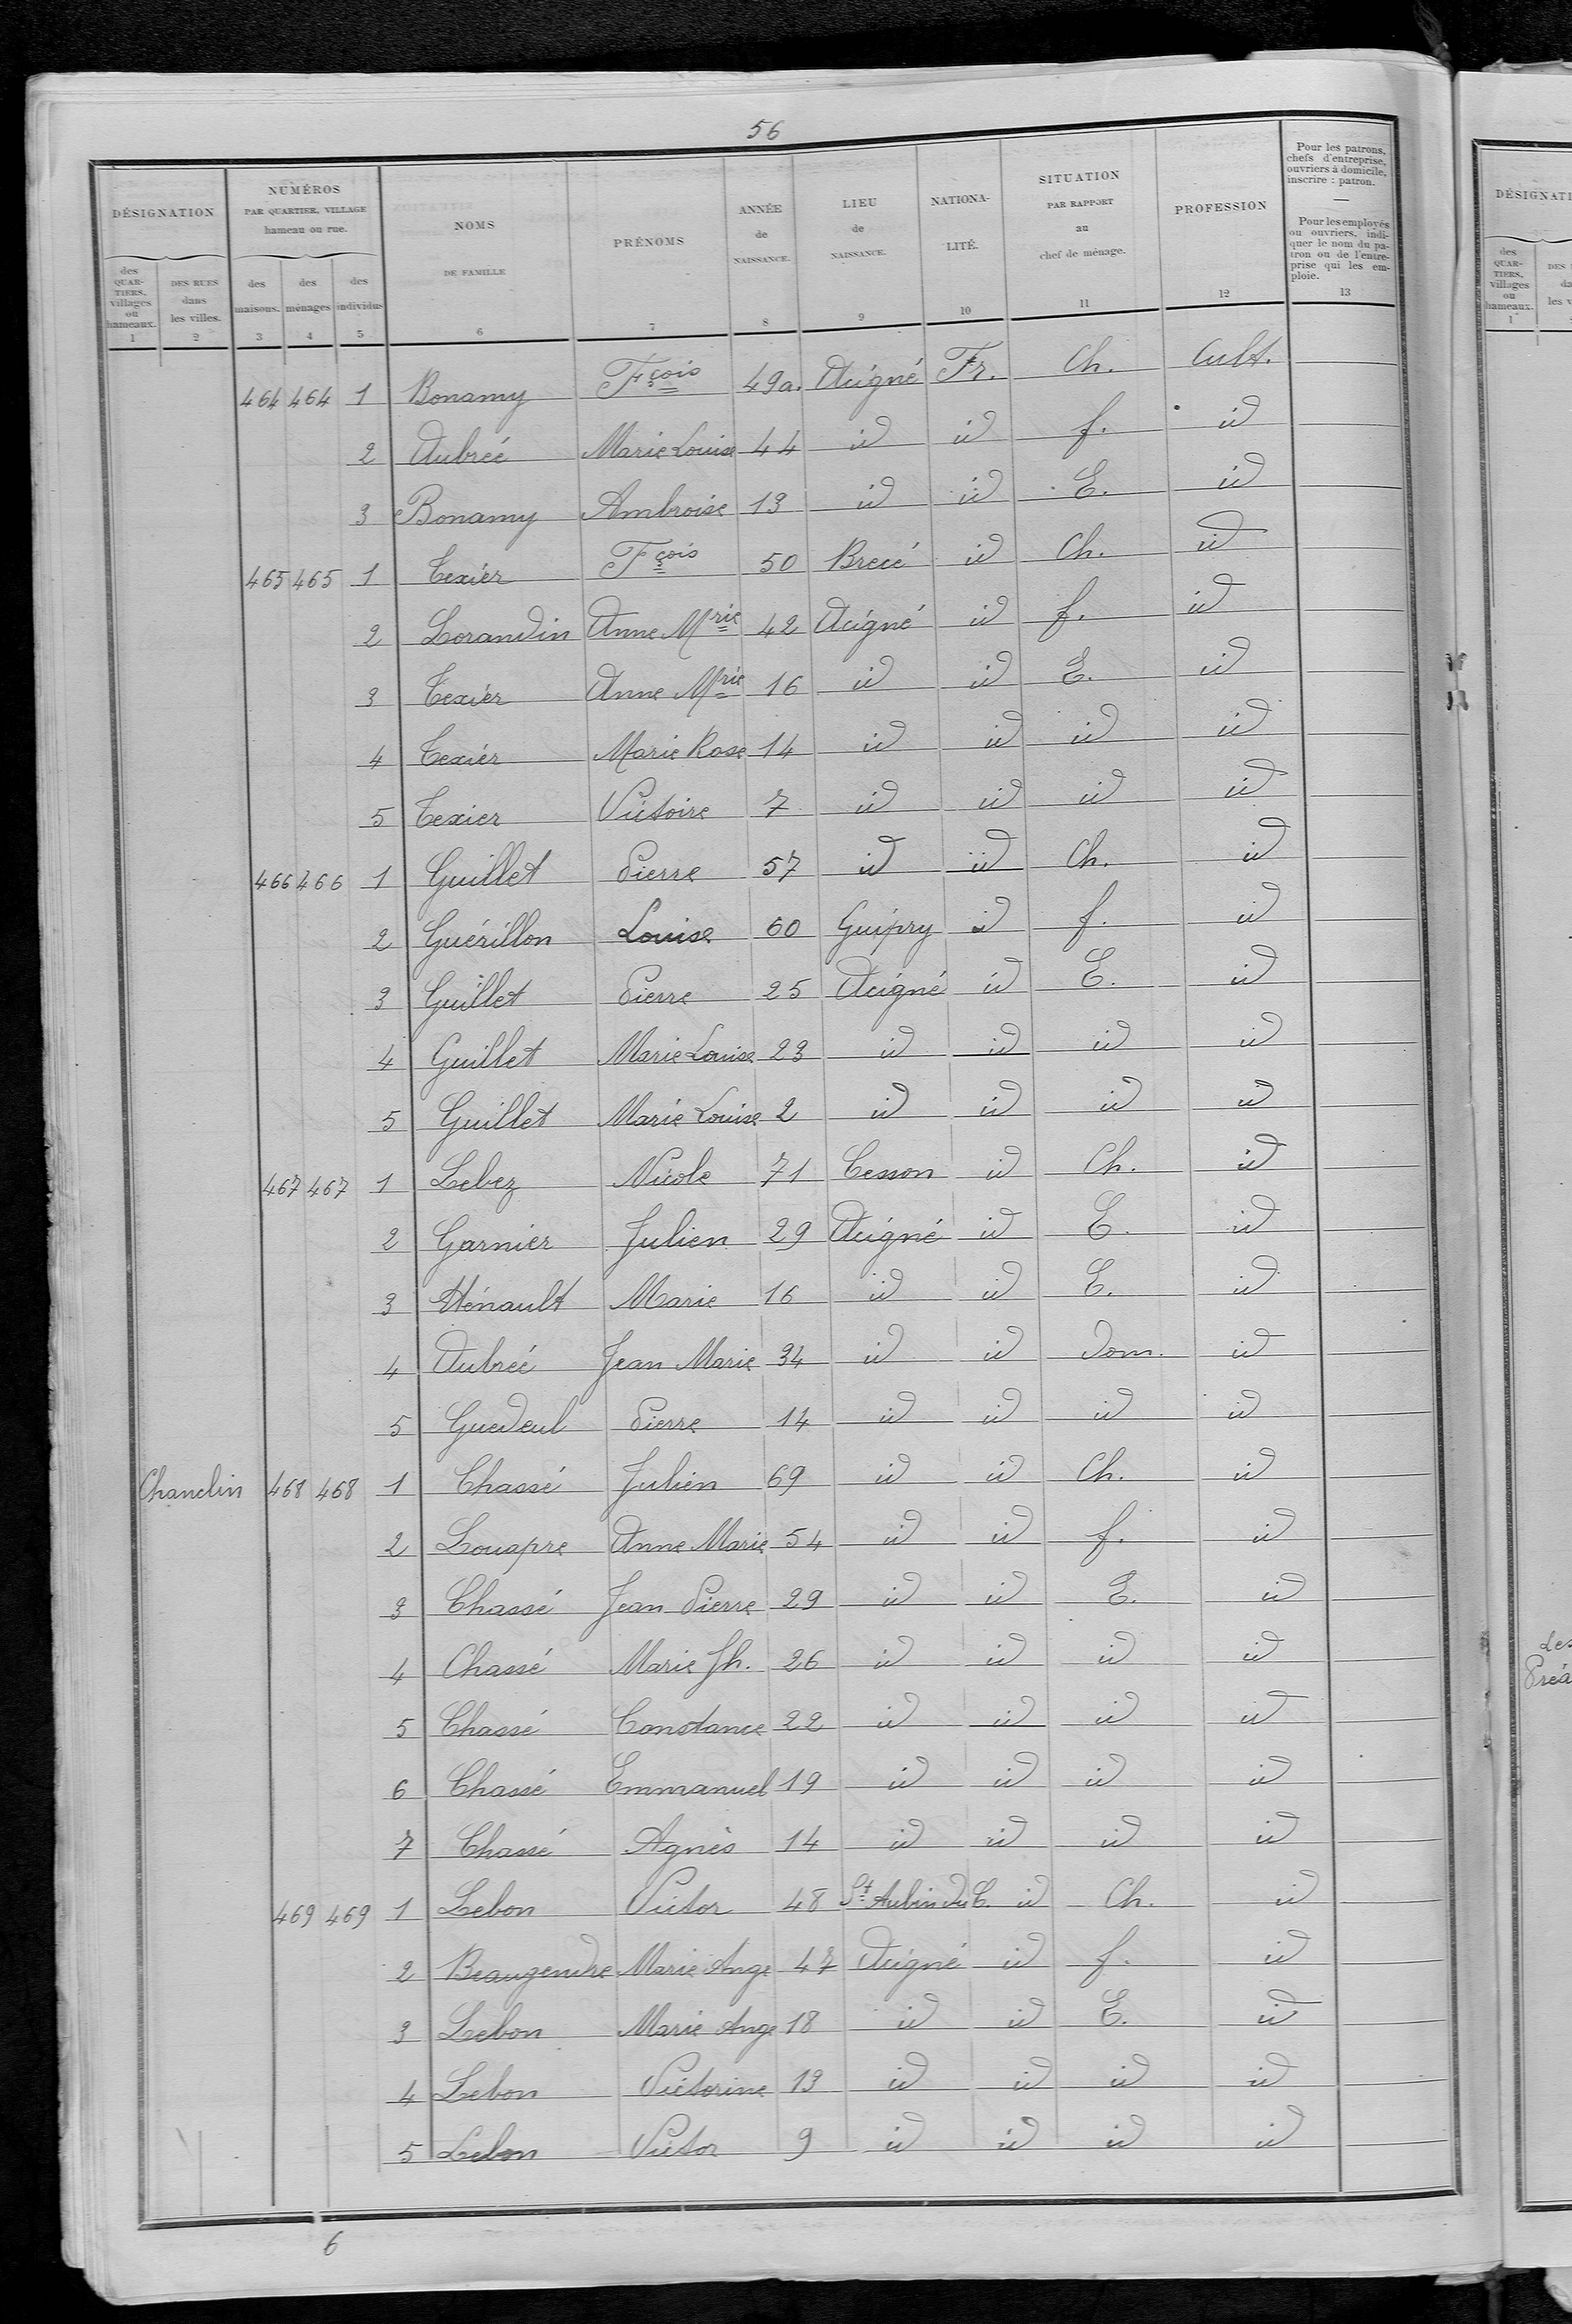 56
DÉSIGNATION
NUMÉROS
PAR QUARTIER, VILLAGE
hameau ou rue.
NOMS
DE FAMILLE
PRÉNOMS
ANNÉE
de
NAISSANCE.
LIEU
de
NAISSANCE.
NATIONA-
LITÉ.
SITUATION
PAR RAPPORT
au
chef de ménage.
PROFESSION
Pour les patrons,
chefs d'entreprise,
ouvriers à domicile,
inscrire : patron.
—
Pour les employés
ou ouvriers, indi-
quer le nom du pa-
tron ou de l'entre-
prise qui les em-
ploie.
des
QUAR-
TIERS,
villages
ou
hameaux.
DES RUES
dans
les villes.
des
maisons.
des
ménages
des
individus
1 2 3 4 5 6 7 8 9 10 11 12 13
464 464 1 Bonamy Fçois 49a. Acigné Fr. Ch. Cult.
2 Aubrée Marie Louise 44 id id f. id
3 Bonamy Ambroise 13 id id E. id
465 465 1 Texier Fçois 50 Brecé id Ch. id
2 Lorandin Anne Mrie 42 Acigné id f. id
3 Texier Anne Mrie 16 id id E. id
4 Texier Marie Rose 14 id id id id
5 Texier Victoire 7 id id id id
466 466 1 Guillet Pierre 57 id id Ch. id
2 Guérillon Louise 60 Guipry id f. id
3 Guillet Pierre 25 Acigné id E. id
4 Guillet Marie Louise 23 id id id id
5 Guillet Marie Louise 2 id id id id
467 467 1 Lebez Nicole 71 Cesson id Ch. id
2 Garnier Julien 29 Acigné id E. id
3 Hénault Marie 16 id id E. id
4 Aubrée Jean Marie 34 id id dom. id
5 Guedeul Pierre 14 id id id id
Chanclin 468 468 1 Chassé Julien 69 id id Ch. id
2 Louapre Anne Marie 54 id id f. id
3 Chassé Jean Pierre 29 id id E. id
4 Chassé Marie Jh. 26 id id id id
5 Chassé Constance 22 id id id id
6 Chassé Emmanuel 19 id id id id
7 Chassé Agnès 14 id id id id
469 469 1 Lebon Victor 48 St Aubin du C. id Ch. id
2 Beaugendre Marie Ange 47 Acigné id f. id
3 Lebon Marie Ange 18 id id E. id
4 Lebon Victorine 13 id id id id
5 Lebon Victor 9 id id id id
6
DÉSIGNATI
des
QUAR-
TIERS,
villages
ou
hameaux.
1
Les
Préa